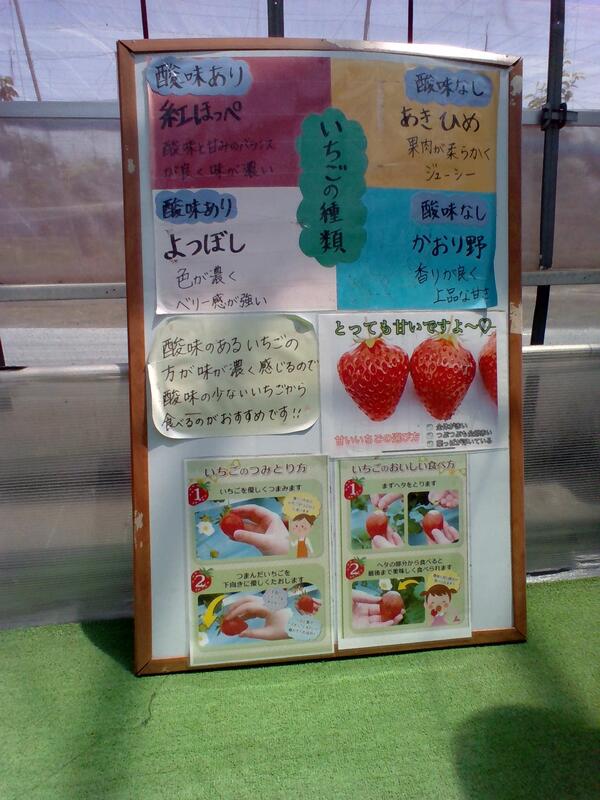 いちごの種類
酸味あり
紅ほっぺ
酸味と甘みのバランス
が良く味が濃い
酸味なし
あきひめ
果肉が柔らかく
ジューシー
酸味あり
よつぼし
色が濃く
ベリー感が強い
酸味なし
かおり野
香りが良く
上品な甘さ
酸味のあるいちごの
方が味が濃く感じるので
酸味の少ないいちごから
食べるのがおすすめです!!
とっても甘いですよ〜♡
甘いいちごの選び方
全体が赤い
つぶつぶも全部赤い
葉っぱが浮いている
いちごのつみとり方
1
いちごを優しくつまみます
2
つまんだいちごを
下向きに優しくたおします
いちごのおいしい食べ方
1
まずヘタをとります
2
ヘタの部分から食べると
最後まで美味しく食べられます